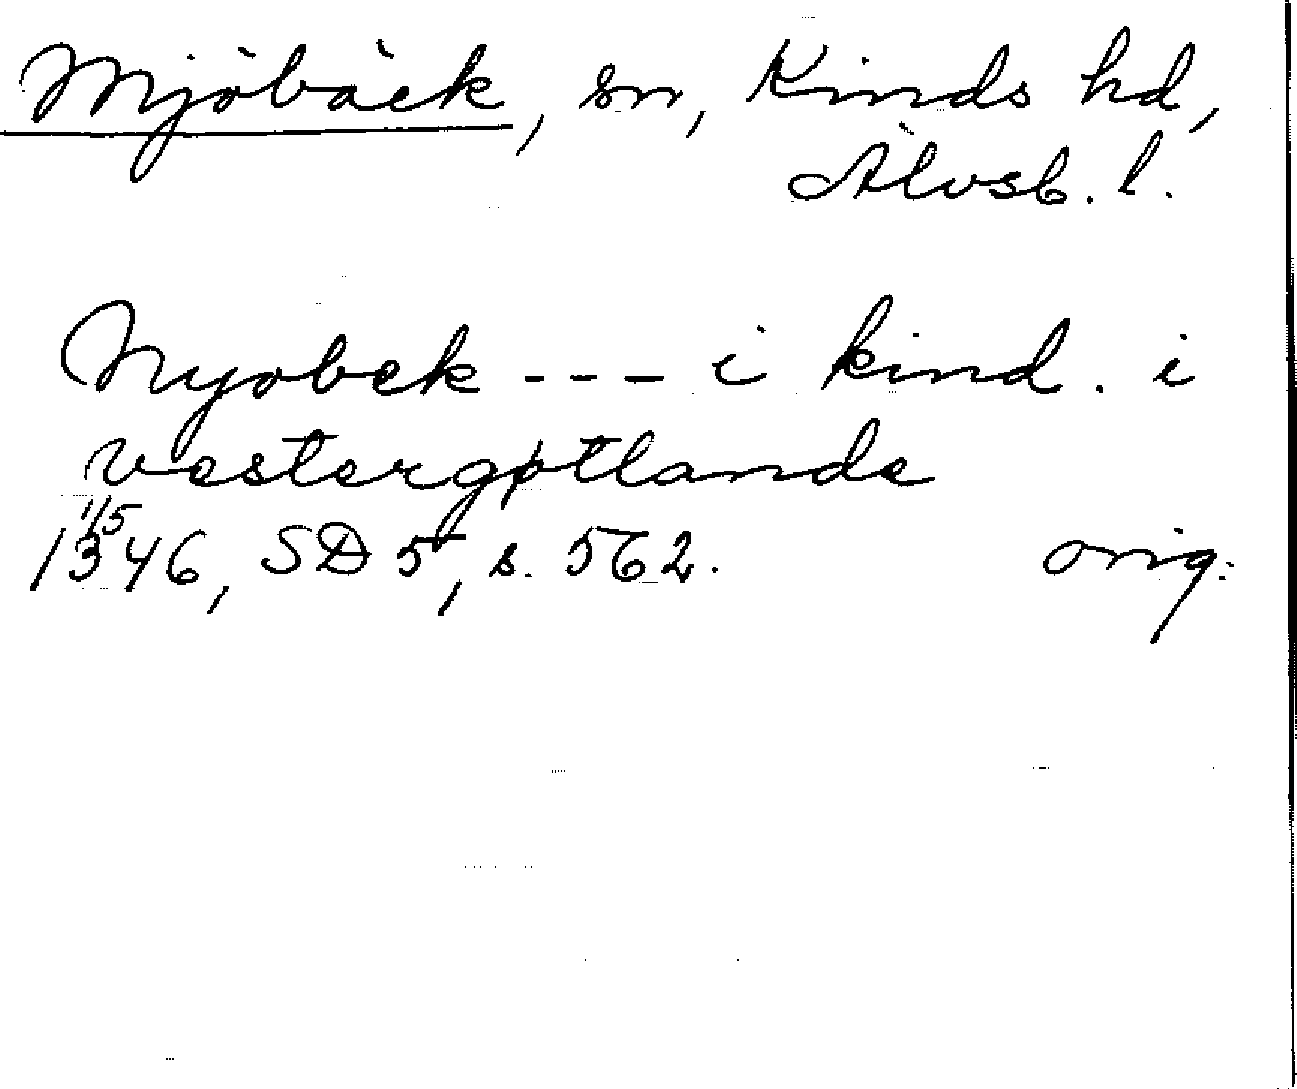 Mjöbäck, sn, Kinds hd,
Älvsb. l.
Myobek --- i kind. i
vestergøtlande
1/5
1346, SD 5, s. 562. orig.